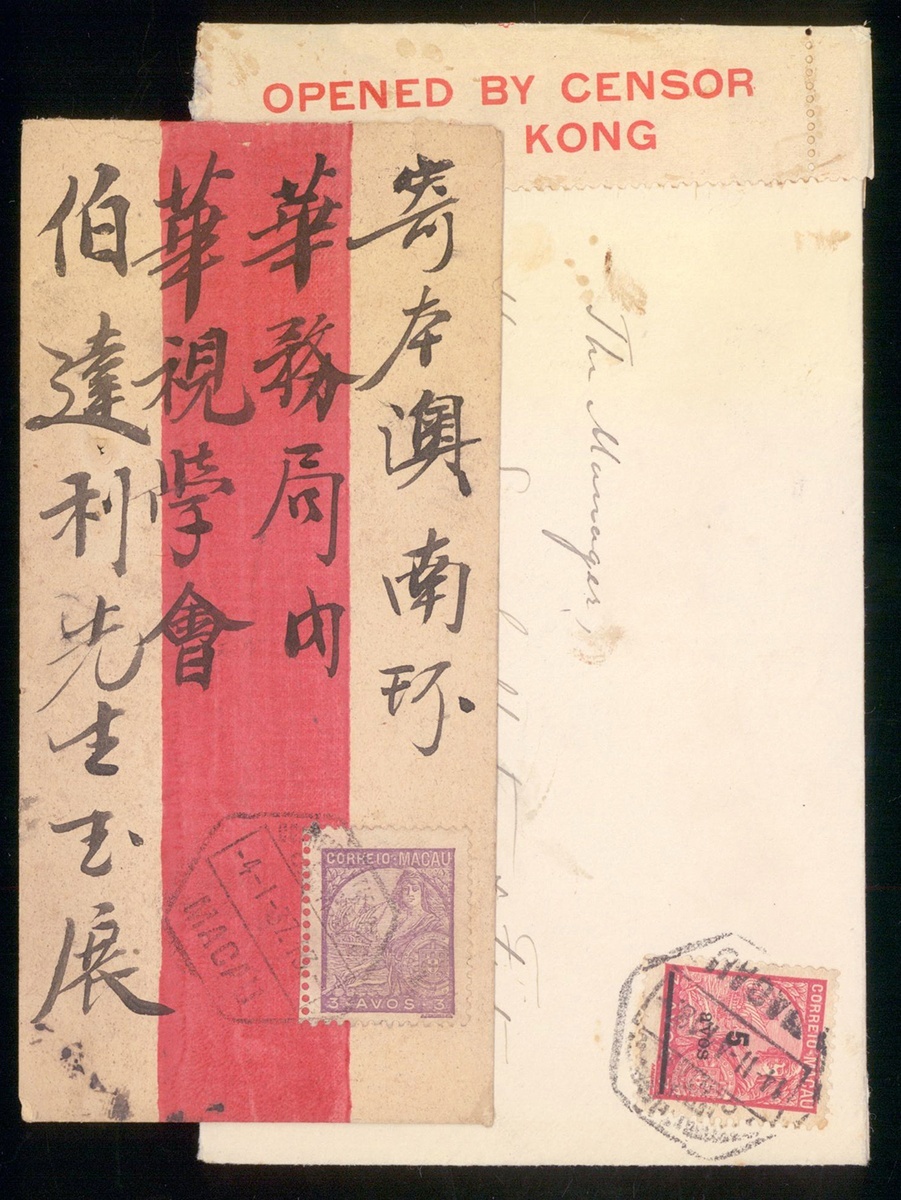 OPENED BY CENSOR
KONG
寄本澳南环
華務局内
華視学會
伯達利先生玉展
The Manager,
CORREIO·MACAU
3·AVOS·3
-4-1-
MACAU
CORREIO·MACAU
5
avos
MACAU